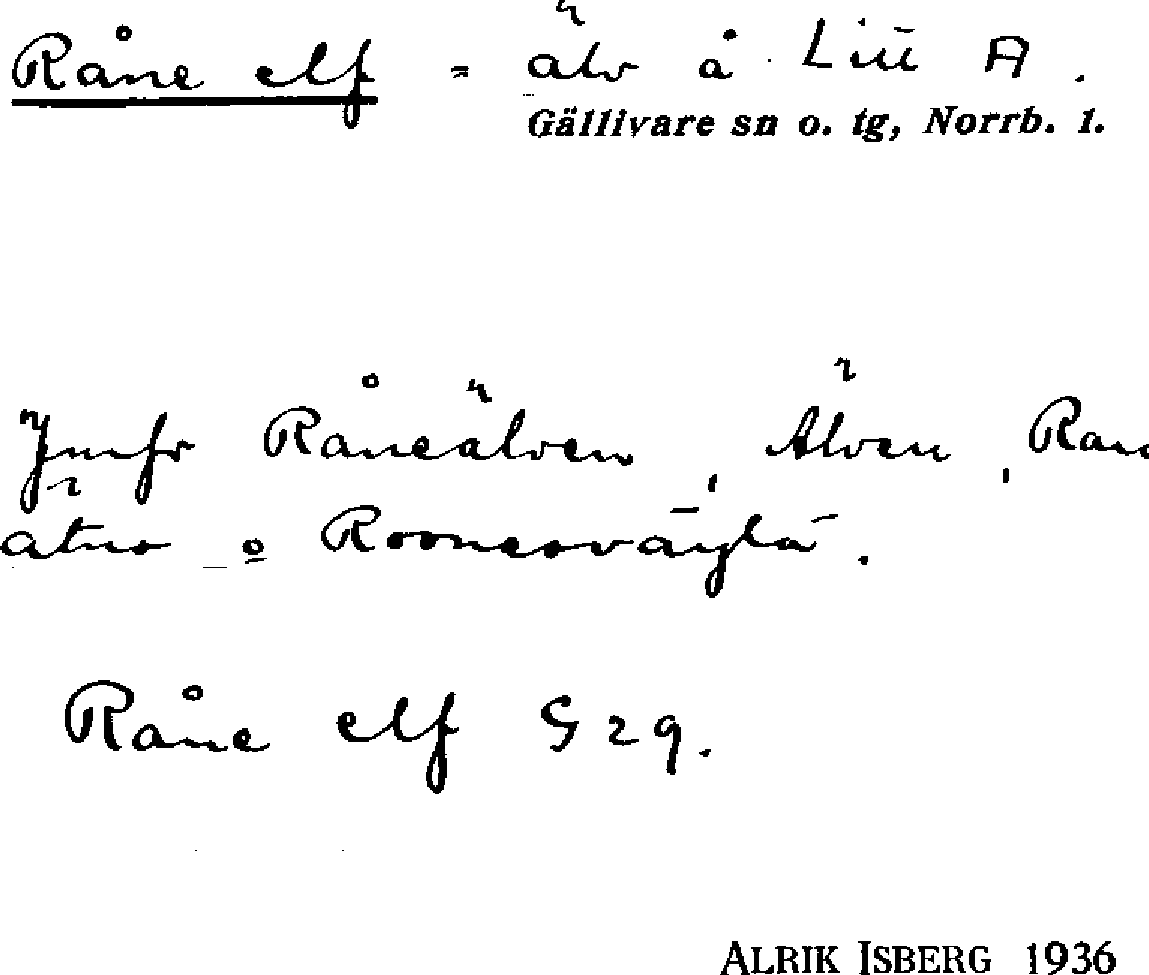 Råne elf = älv å Litt A.
Gällivare sn o. tg, Norrb. l.
Jmfr Råneälven, Älven, Ran
ätno o Roonesväylä.
Råne elf G 29.
ALRIK ISBERG 1936